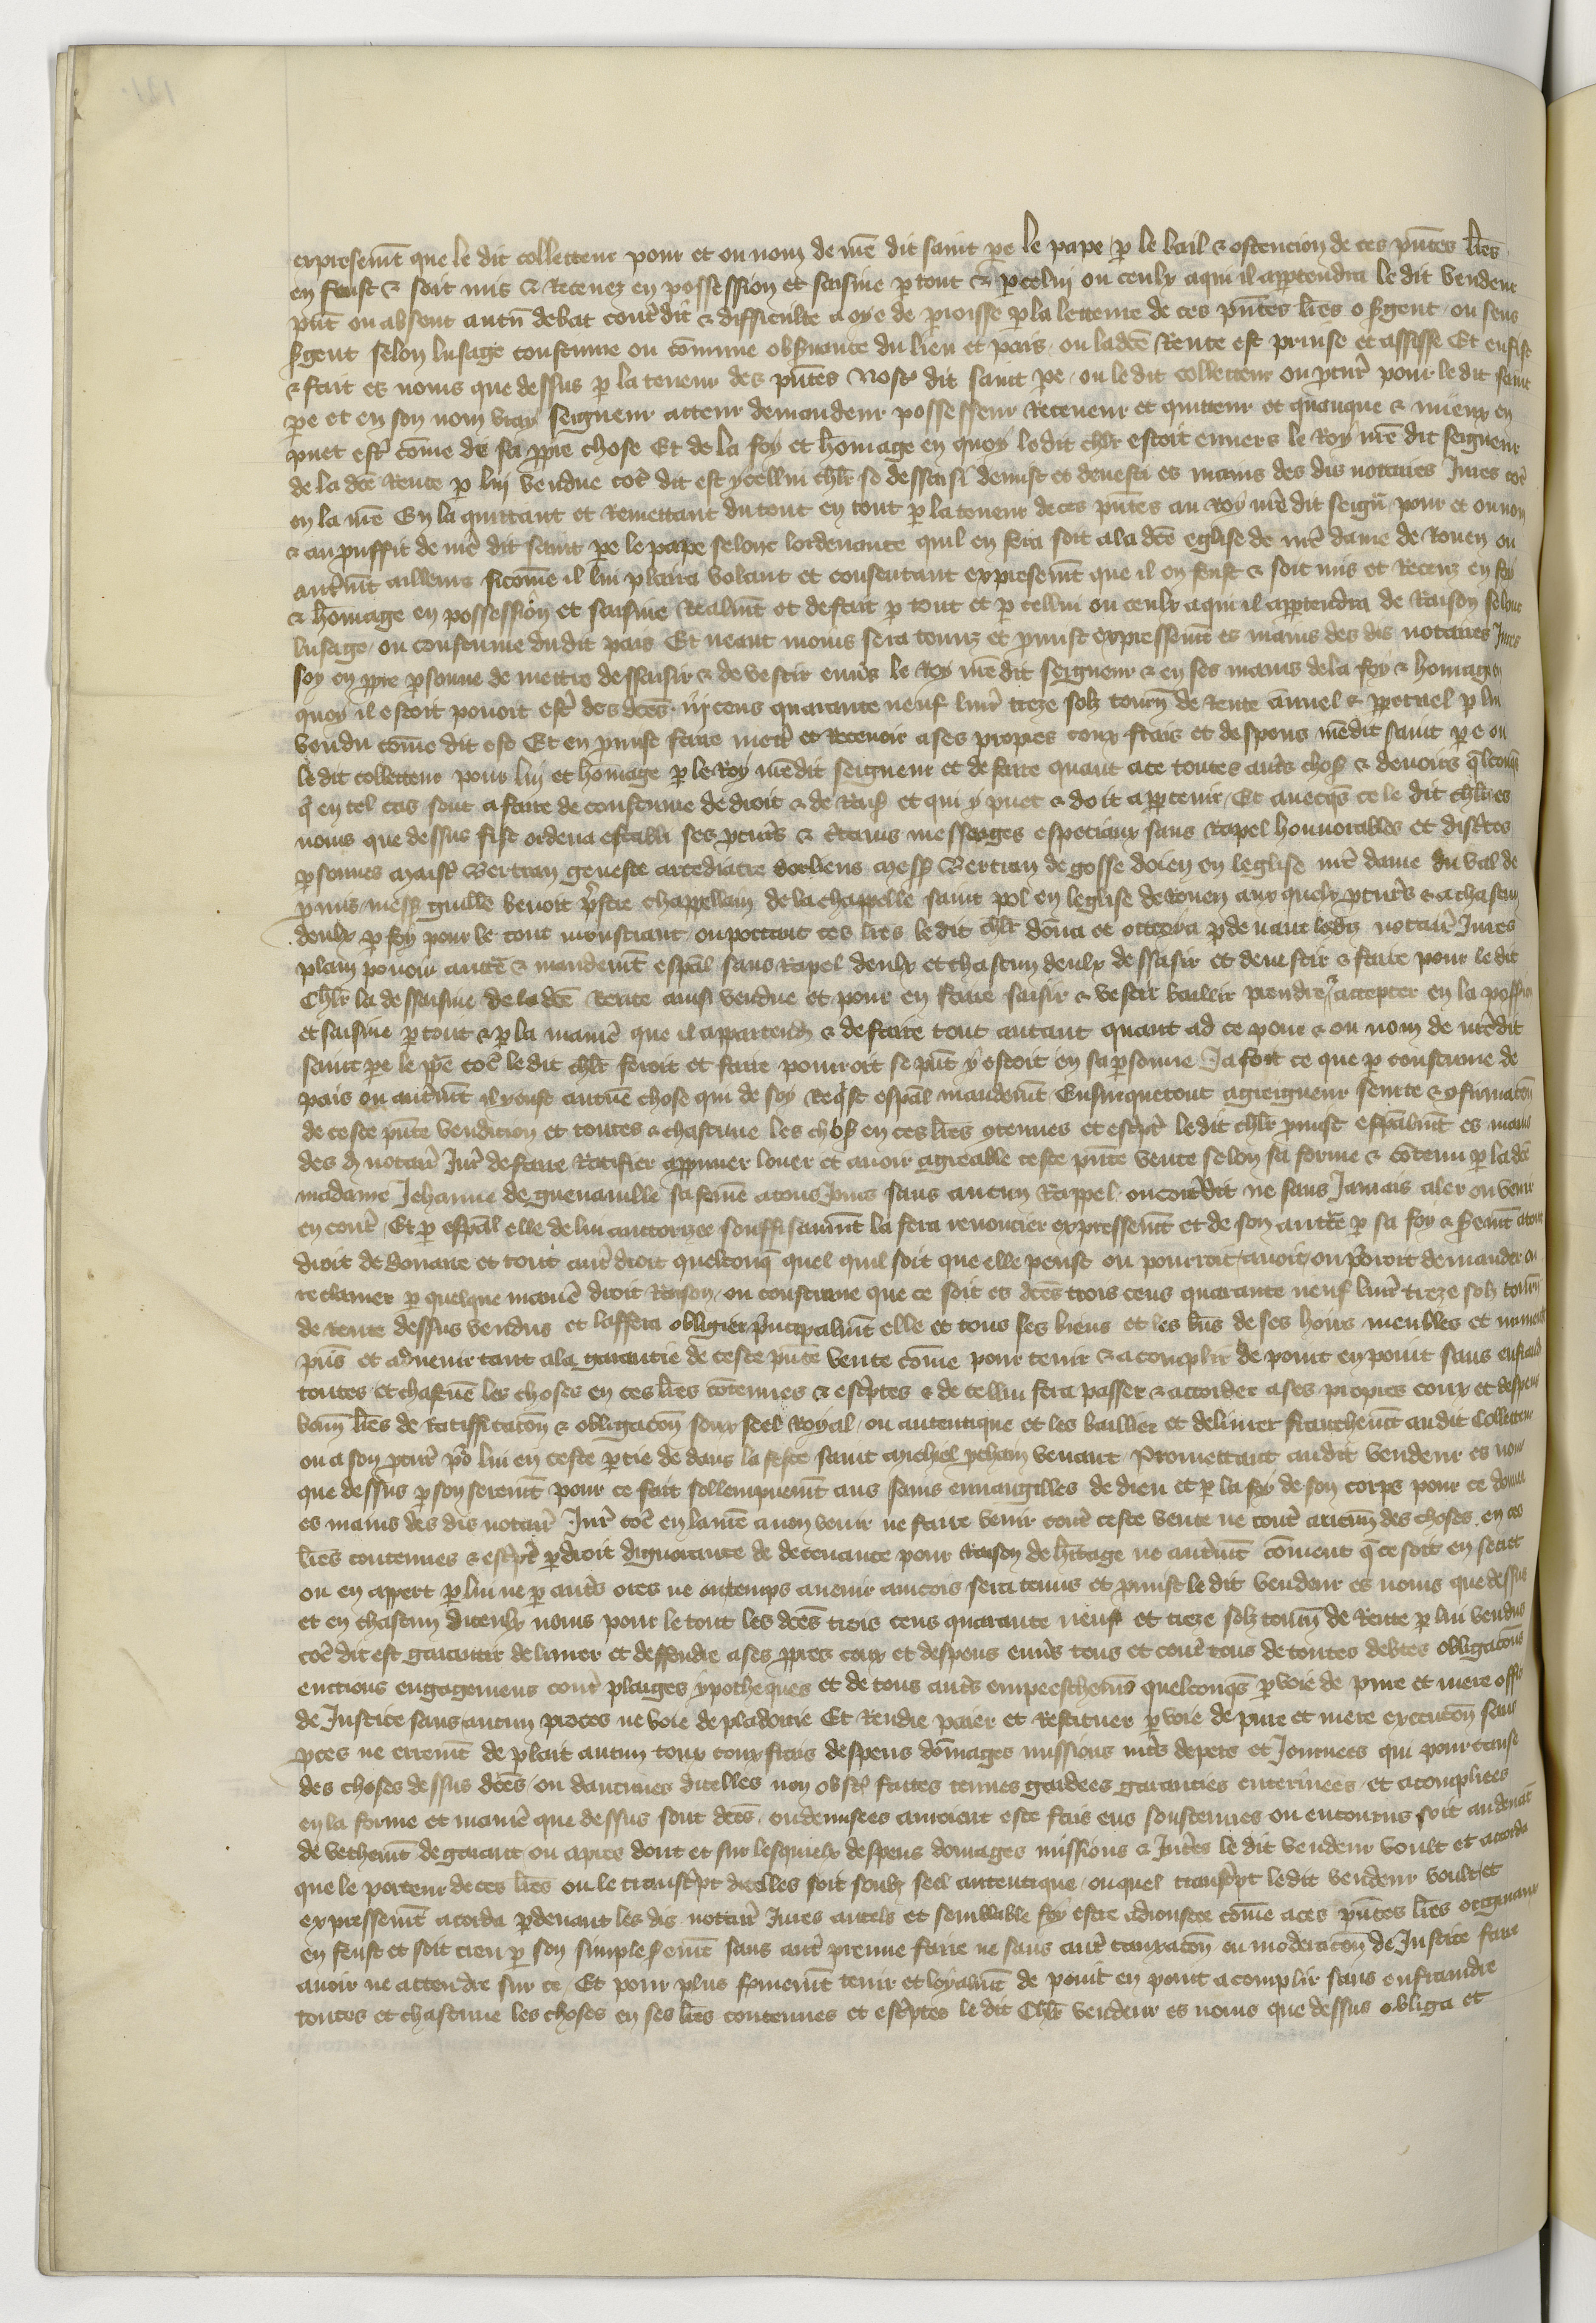 expressemt que le dit collecteur pour et ou nom de nre dit saint pe le pape p le bail & ostencion de ces pntes lres
en feust & soit mis & Receuez en possession et saisine p tout & p celui ou ceulx a qui il appartendra le dit vendeur
pnt ou absent aucun debat contredit & difficulte a oye de paroisse p la lecteure de ces pntes lres o sgent ou sens
sgent selon lusage coustume ou comune obseruance du lieu et pais ou ladce Rente est prinse et assisse Et en fist
& fait es noms que dessus p la teneur des pntes Nostre dit saint pe ou le dit collecteur ou pcur pour le dit saint
pe et en son nom vray seigneur acteur demandeur possesseur Receueur et quitteur et quanque & mieux en
puet estre come de sa ppre chose Et de la foy et homage en quoy le dit chlr estoit enuers le Roy nre dit seigneur
de la dce Rente p luy vendue coe dit est ycellui chlr se dessaisi demist et deuesti es mains des dis notaires Jures coe
en la me En la quittant et Remettant du tout en tout p la teneur de ces pntes au Roy nre dit seignr pour et ou nom
& au prouffit de nre dit saint pe le pape selonc lordenance quil en fera soit a la dce eglise de nre dame de Rouen ou
autremt ailleurs sicome il lui plaira volant et consentant expressemt que il en feust & soit mis et Recenz en foy
& homage en possession et saisine Realmt et de fait p tout et p cellui ou ceulx a qui il appartendra de Raison selonc
lusage ou coustume du dit pais Et neant moins sera tenuz et pmist expressemt es mains des dis notaires Jures
soy en ppre psonne de mettre dessaisir & de vestir enuers le Roy nre dit seigneur & en ses mains de la foy & homage en
quoy il estoit pouoit estre des dces iijcens quarante neuf liures treze solz tourn de rente annuel & ppetuel p lui
vendu come dit est Et en pmist faire mettre et Recevoir a ses propres coux frais et despens nre dit saint pe ou
le dit collecteur pour lui et homage p le Roy nre dit seigneur et de faire quant a ce toutes autres choses & deuoirs qlconq
q en tel cas sont a faire de coustume de droit & de Rais et qui y puet & doit appartenir Et auecqs ce le dit chlr es
noms que dessus fist ordena establi ses pcurs & certains messages especiaux sans Rapel honnorables et discretes
psonnes maistre Bertran geneste arcediacre dorliens mess Bertran de gosse doien en leglise nre dame du val de
pmis mess guille benoit prestre chappellain de la chappelle saint pol en leglise de Rouen aux quelx pcurs & a chascun
deulx p soy pour le tout monstrant ou portant ces lres le dit chlr dona et ottroya pdeuant lesdiz notaires Jures
plain pouoir aucte & mandemt espal sans Rapel deulx et chascun deulx dessaisir et deuestir & faire pour le dit
Chlr la dessaisine de la dce Rente ainsi vendue et pour en faire saisir & vestir bailler prendre accepter en la possession
et saisine p tout & p la maniere que il appartendra & de faire tout autant quant ad ce pour & ou nom de nre dit
saint pe le ppe coe le dit chlr feroit et faire pourroit se pnt y estoit en sa psonne Ja soit ce que p coustume de
pais ou autremt il y eust aucune chose qui de soy Requist espal mandemt Ensurquetout a greigneur seurte & confirmacon
de ceste pnte vendicion et toutes & chascune les choses en ces lres contenues et escriptes le dit chlr pmist espalmt es mains
des diz notaires Jures de faire Ratifier appuuer louer et auoir agreable ceste pnte vente selon sa forme & contenu p la dce
madame Jehanne de guenauille sa feme a tous Jours sans aucun Rappel ou contredit ne sans Jamais aler ou venir
en contre Et p espal elle de lui auctorizee souffisamt la fera renoncier expressemt et de son aucte p sa foy & seremt a tout
droit de douaire et tout autre droit quelconq quel quil soit que elle peust ou pourroit auoir ou pourroit demander ou
reclamer p quelque maniere droit Raison ou coustume que ce soit es dces trois cens quarante neuf liures treze solz tourn
de Rente dessus vendus et laffera obligier principalmt elle et tous ses biens et les bns de ses hoirs meubles et inmeubles
pns et aduenir tant a la garantie de ceste pnte vente come pour tenir & acomplir de point en point sans enfraindre
toutes et chascune les choses en ces lres contenues & escriptes & de cellui fera passer & accorder a ses propres coux et despens
bonnes lres de Ratifficacon & obligacon soux seel Royal ou autentique et les baillier et deliurer franchemt au dit Collecteur
ou a son pcur po lui en ceste ptie de dans la feste saint michiel pcham venant Promettant au dit vendeur es noms
que dessus p son seremt pour ce fait sollempnemt aus sains euuangilles de dieu et p la foy de son corps pour ce donnee
es mains des dis notaires Jures coe en la me a non venir ne faire venir contre ceste vente ne contre aucune des choses en ces
lres contenues & escriptes p droit dignorance de deceuance pour Raison de heritage ne autremt coment q ce soit en secret
ou en appert p lui ne p autres ores ne ou temps auenir aincois sera tenus et pmist le dit vendeur es noms que dessus
et en chascun diceulx noms pour le tout les dces trois cens quarante neuf et treze solz tourn de Rente p lui vendus
coe dit est garantir deliurer et deffendre a ses ppres coux et despens enuers tous et contre tous de toutes debtes obligacons
enctions engagemens contre plaiges ypotheques et de tous autres empeeschemens quelconqs p voie de pure et mere office
de Justice sans aucun proces ne voie de pladoirie Et Rendre paier et Restituer p voie de pure et mere execucon sans
pces ne erremt de plait aucun toux coux frais despens domages missions interes depers et Journees qui pour cause
des choses dessus dces ou daucunes dicelles non obstant faites tenues gardees garanties enterinees et acomplies
en la forme et maniere que dessus sont dces ou deuisees auroient este fais eus soustenues ou encourus soit au deuant
de vechemt de garant ou apres dont et sur lesquielx despens domages missions & Interes le dit vendeur voult et accorda
que le porteur de ces lres ou le transcript dicelles soit soubz seel autentique ou quel transcript le dit vendeur voult et
expressemt acorda pdeuant les dis notaires Jures autels et semblable foy estre adioustee come a ces pntes lres origuaux
en feust et soit creu p son simple seremt sans autre preuue faire ne sans autre tauxacon ou moderacon de Justice faire
auoir ne attendre sur ce Et pour plus fermemt tenir et loyalmt de point en point acomplir sans enfraindre
toutes et chascune les choses en ses lres contenues et escriptes le dit Chlr vendeur es noms que dessus obliga et